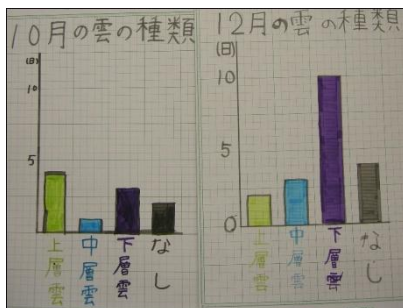 10月の雲の種類
(日)
10
5
上層雲
中層雲
下層雲
なし
12月の雲の種類
(日)
10
5
0
上層雲
中層雲
下層雲
なし